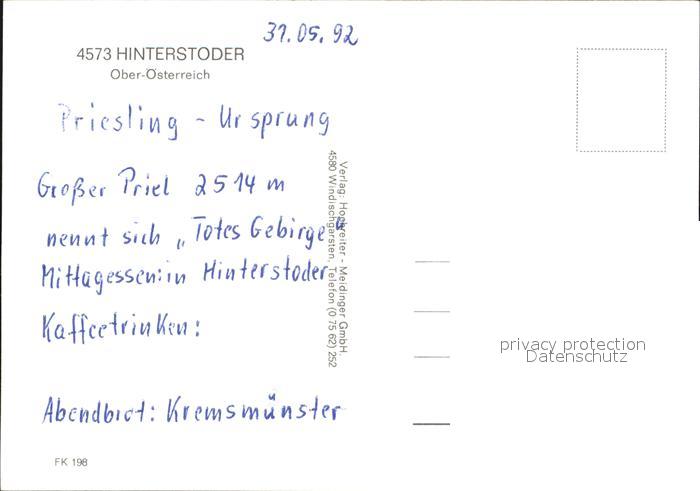 31.05.92
4573 HINTERSTODER
Ober-Österreich
Priesling - Ursprung
Großer Priel 2514 m
nennt sich „Totes Gebirge"
Mittagessen: in Hinterstoder
Kaffeetrinken:
Abendbrot: Kremsmünster
Verlag: Hochreiter - Meidinger GmbH.
4580 Windischgarsten, Telefon (0 75 62) 252
privacy protection
Datenschutz
FK 198